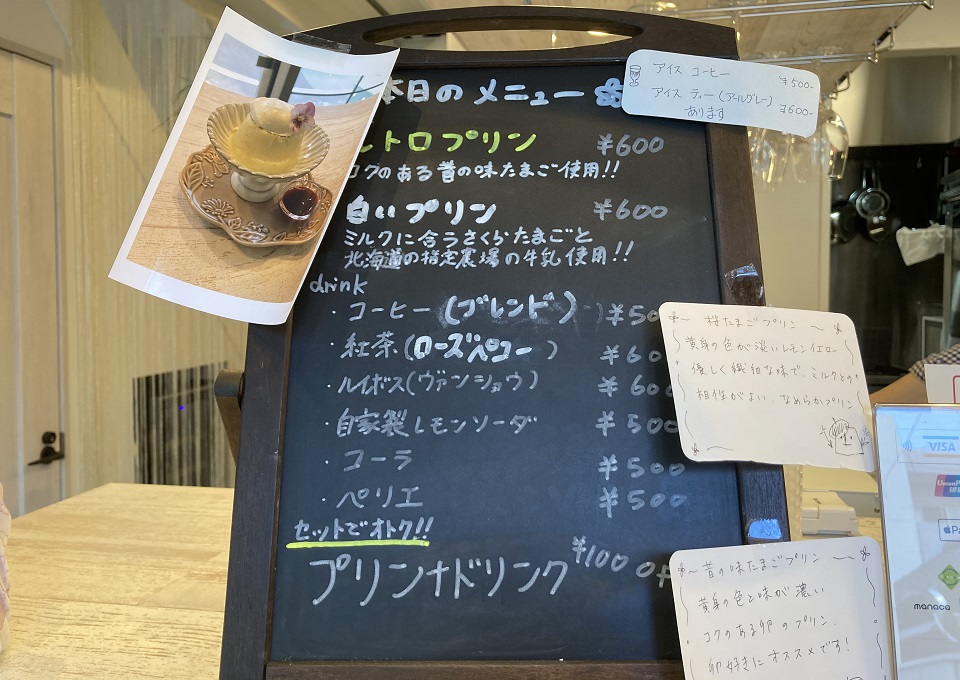 本日のメニュー
レトロプリン ¥600
コクのある昔の味たまご使用!!
白いプリン ¥600
ミルクに合うさくらたまごと
北海道の指定農場の牛乳使用!!
drink
・コーヒー(ブレンド) ¥50
・紅茶(ローズペコー) ¥60
・ルイボス(ヴァンショウ) ¥600
・自家製レモンソーダ ¥500
・コーラ ¥500
・ペリエ ¥500
セットでオトク!!
プリン+ドリンク ¥100 OF
アイス コーヒー ¥500-
アイス ティー(アールグレー) ¥600-
あります
~ 桜たまごプリン ~
黄身の色が淡いレモンイエロー
優しく繊細な味で、ミルクとの
相性がよい、なめらかプリン
~ 昔の味たまごプリン ~
黄身の色と味が濃い
コクのある卵のプリン.
卵好きにオススメです!
VISA
UnionP
manaca